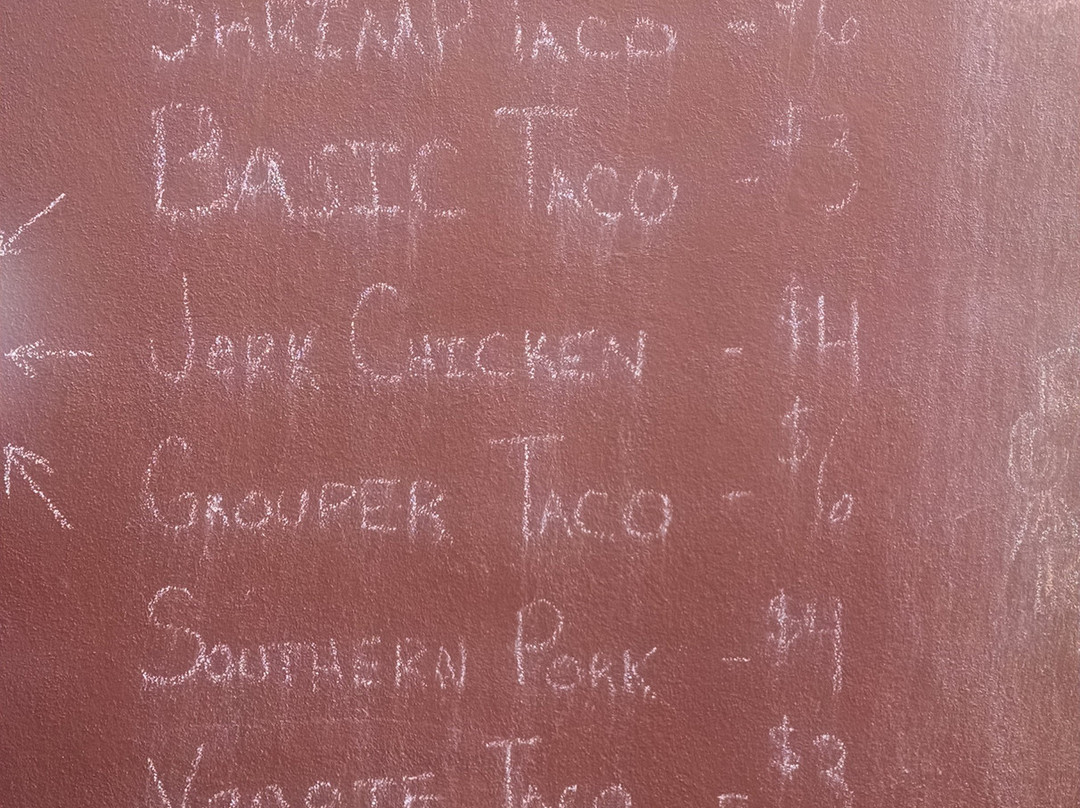 SHRIMP TACO - $6
BASIC TACO - $3
JERK CHICKEN - $4
GROUPER TACO - $6
SOUTHERN PORK - $4
VEGGIE TACO - $3